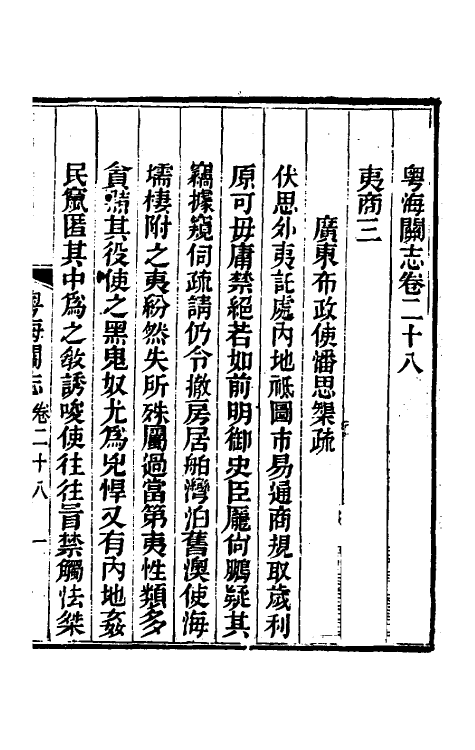 粵海關志卷二十八
夷商三
廣東布政使潘思榘疏
伏思外夷託處內地祗圖市易通商規取歲利
原可毋庸禁絕若如前明御史臣龐尙鵬疑其
竊據窺伺疏請仍令撤房居舶灣泊舊澳使海
壖棲附之夷紛然失所殊屬過當第夷性類多
貪黠其役使之黑鬼奴尤爲兇悍又有內地姦
民竄匿其中爲之敎誘唆使往往冒禁觸法桀
粵海關志 卷二十八 一